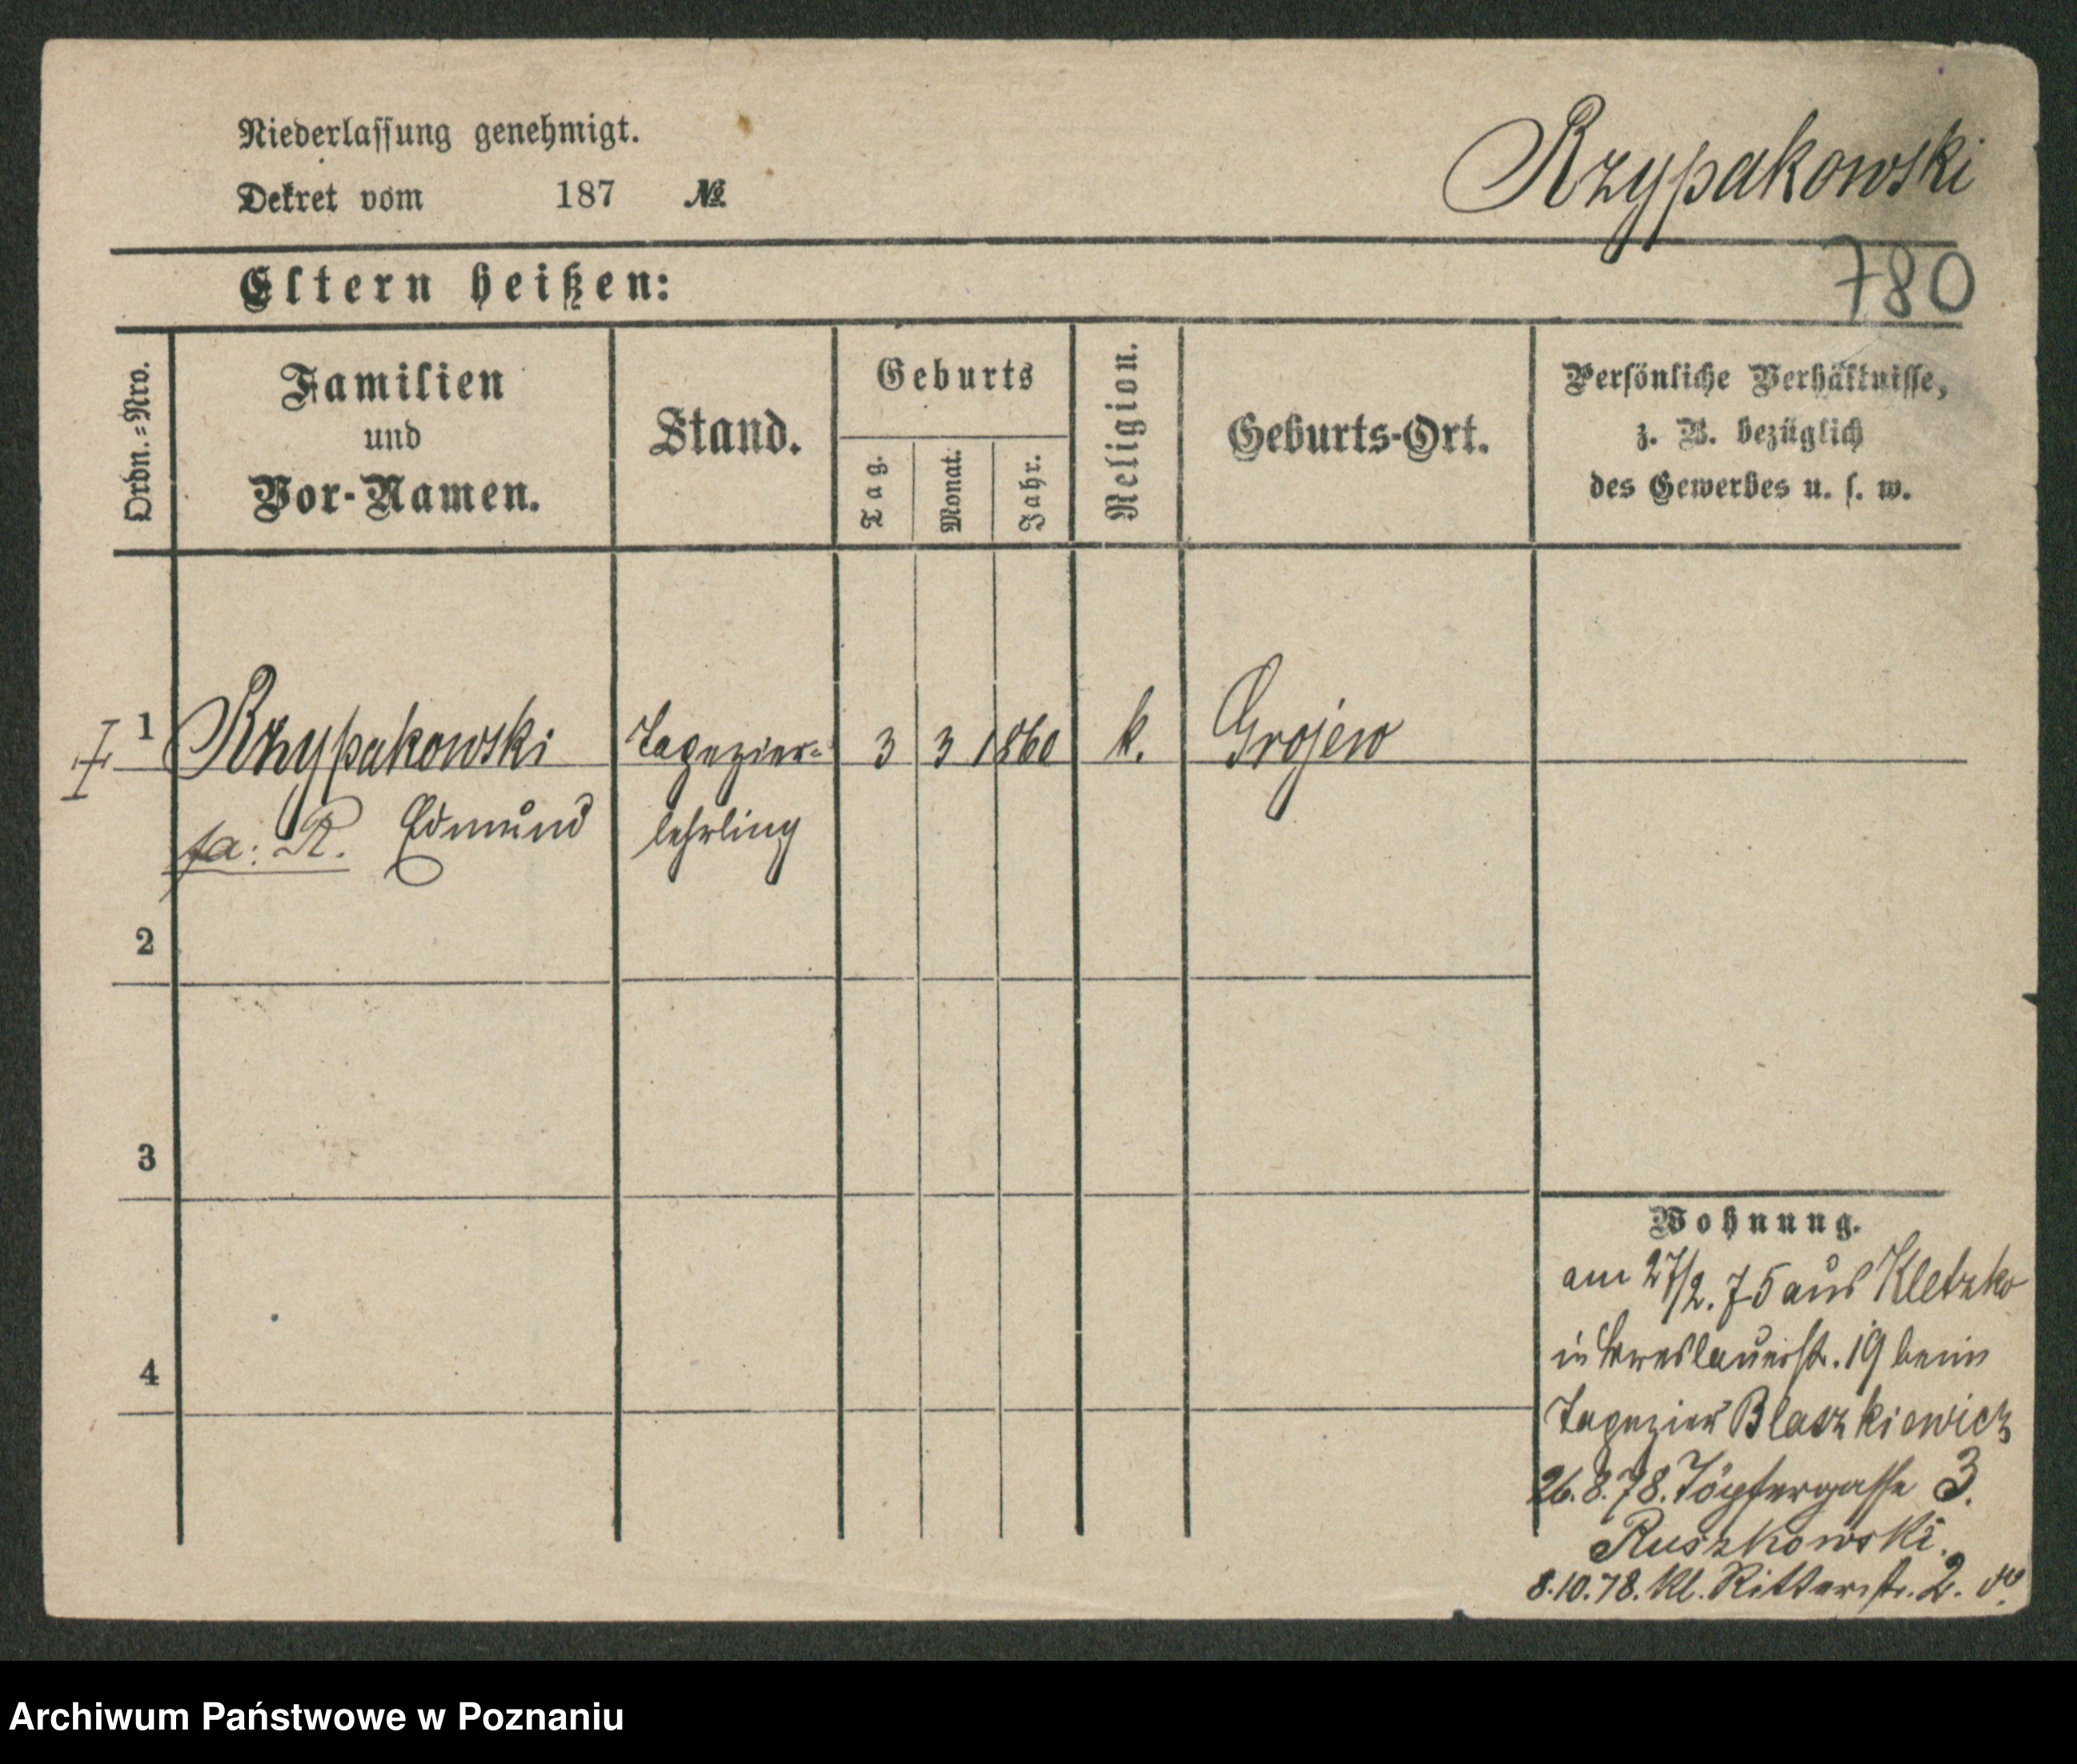 Niederlassung genehmigt.
Rzypakowski
Dekret vom 187 №
780
Eltern heißen:
Ordn.=Nro.
Familien
und
Vor-Namen.
Stand.
Geburts
Tag.
Monat.
Jahr.
Religion.
Geburts-Ort.
Persönliche Verhältnisse,
z. B. bezüglich
des Gewerbes u. s. w.
1 Rzypakowski Tapezier= 3 3 1860 k. Grojewo
fa: R. Edmund lehrling
2
3
4
Wohnung.
am 27/2. 75 aus Kletzko
in Breslauerst. 19 beim
Tapezier Blaszkiewicz
26.8.78. Töpfergasse 3.
Ruszkowski.
8.10.78. Kl. Ritterstr. 2.
Archiwum Państwowe w Poznaniu